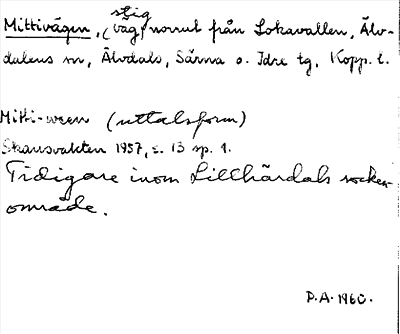 stig
Mittivägen, (väg) norrut från Lokavallen, Älv-
dalens sn, Älvdals, Särna o. Idre tg, Kopp. l.
Mitti-ween (uttalsform)
Skansvakten 1957, s. 13 sp. 1.
Tidigare inom Lillhärdals socken-
område.
P.A. 1960.